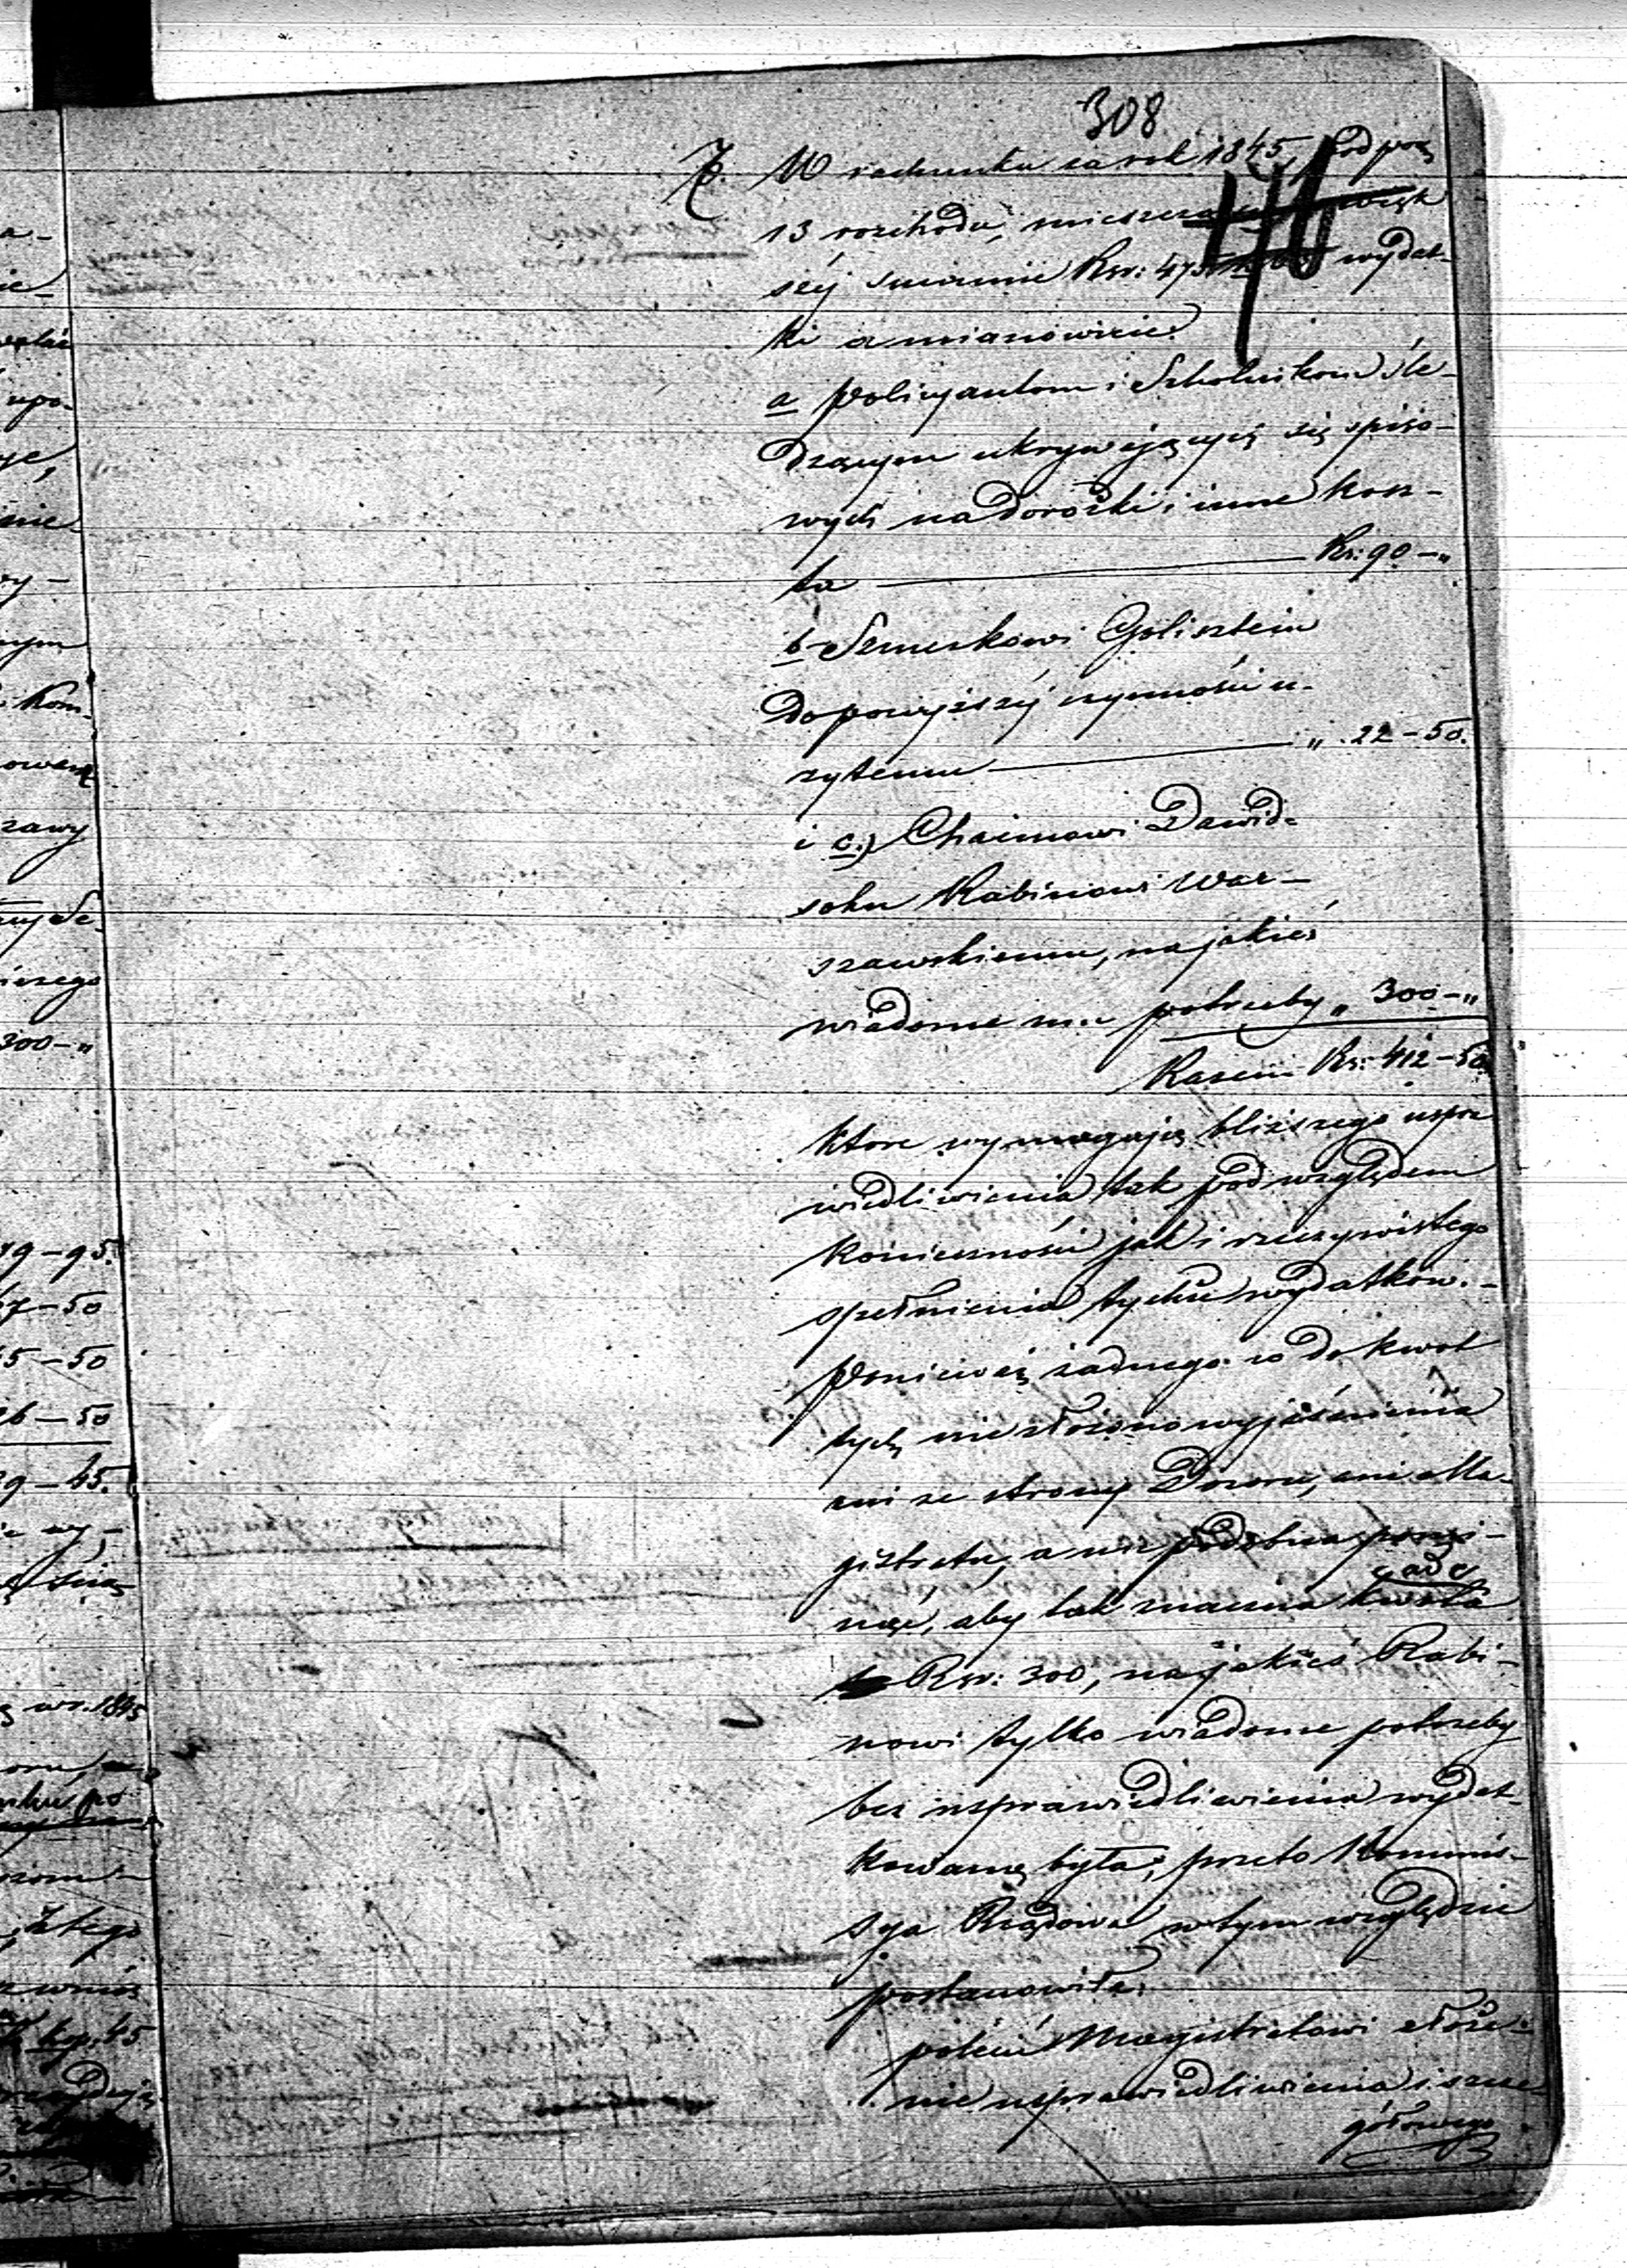 308
176
7. W rachunku za rok 1845, pod poz
13 rozchodu, mieszczą się w więk
széj summie Rsr: 475 wydat-
ki a mianowicie:
a policyantom i Szkolnikom śle-
dzącym ukrywających się spiso-
wych na dorożki i inne kosz-
ta — Rs: 90 – „
b Szmerkowi Golisztein
do powyższéj czynności u-
żytemu — „ 22 – 50.
i c.) Chaimowi Dawid-
sohn Rabinowi War-
szawskiemu, na jakieś
wiadome mu potrzeby „ 300 – „
Razem Rs: 412 – 50
które wymagają bliższego uspra
wiedliwienia tak pod względem
konieczności jak i rzeczywistego
spełnienia tychże wydatków. –
Ponieważ żadnego co do kwot
tych nie złożono wyjaśnienia
ani ze strony Dozoru, ani Ma-
gistratu, a nie podobna
aby tak znaczna kwota
Rsr: 300, na jakieś Rabi-
nowi tylko wiadome potrzeby
bez usprawiedliwienia wydat-
kowaną była; przeto Kommis-
sya Rządowa w tym względzie
postanowiła:
polecić Magistratowi złoże-
nie usprawiedliwienia i szcze-
gółowego
a-
ie-
upo-
nie
wy-
Kom-
zawy
300 – „
19 – 95.
7 – 50
5 – 50
26 – 50
9 – 45.
w r. 1845
kop: 45